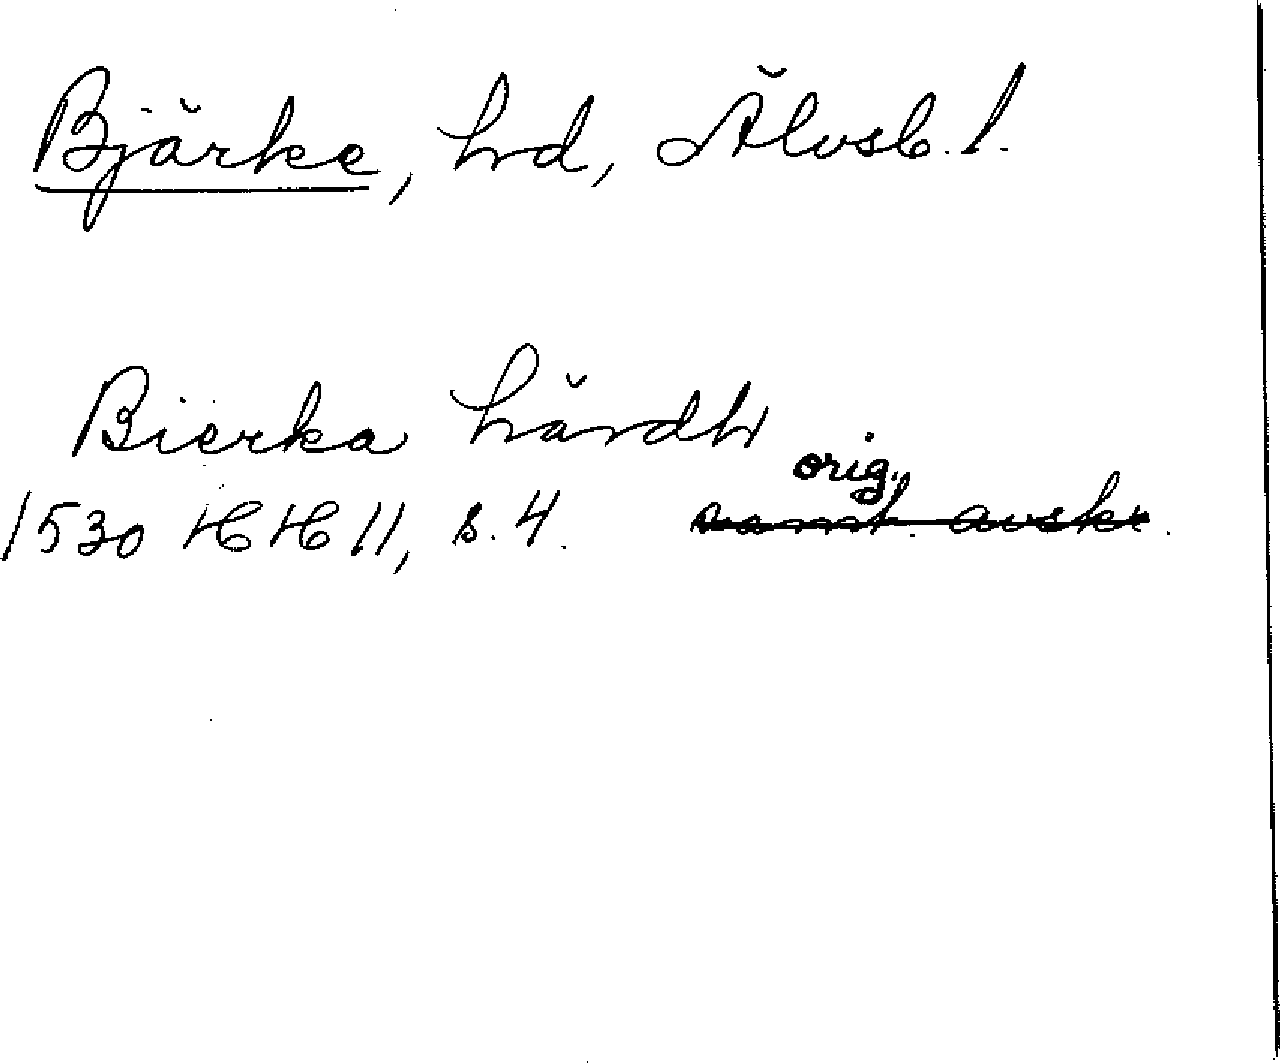 Bjärke, hd, Älvsb. l.
Bierka härdh
orig.
1530 HH 11, s. 4. samt. avskr.